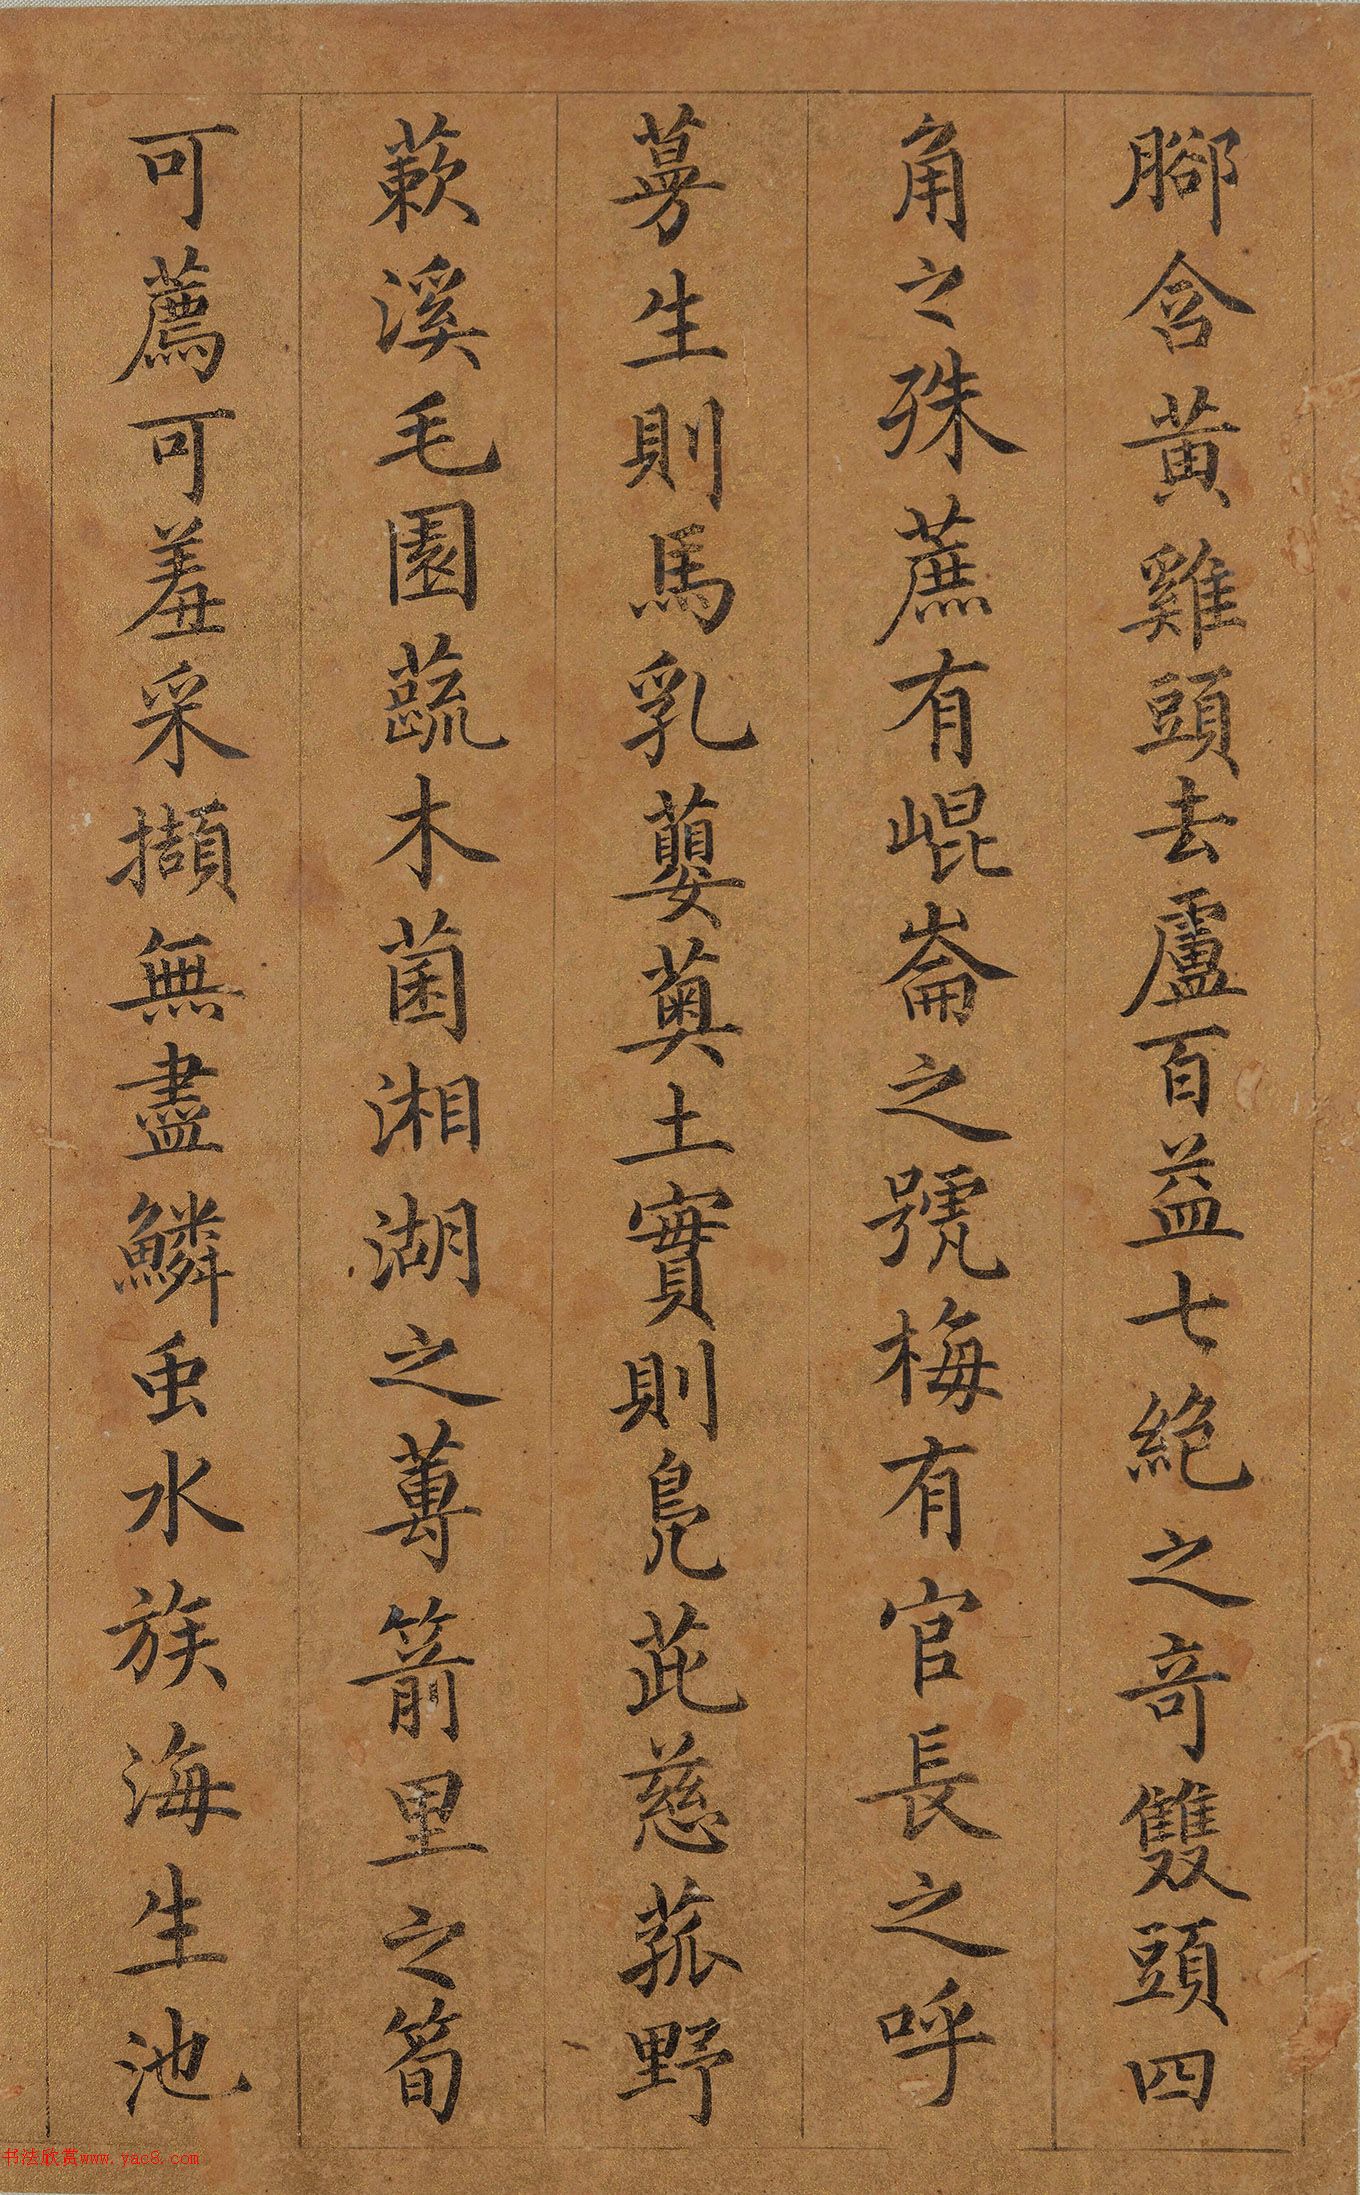 腳含黄雞頭去盧百益七絶之竒雙頭四
角之殊蔗有崐崙之號梅有官長之呼
蔓生則馬乳蘡薁土實則鳧茈慈菰野
蔌溪毛園蔬木菌湘湖之蓴箭里之筍
可薦可羞采擷無盡鱗虫水族海生池
书法欣赏www.yac8.com